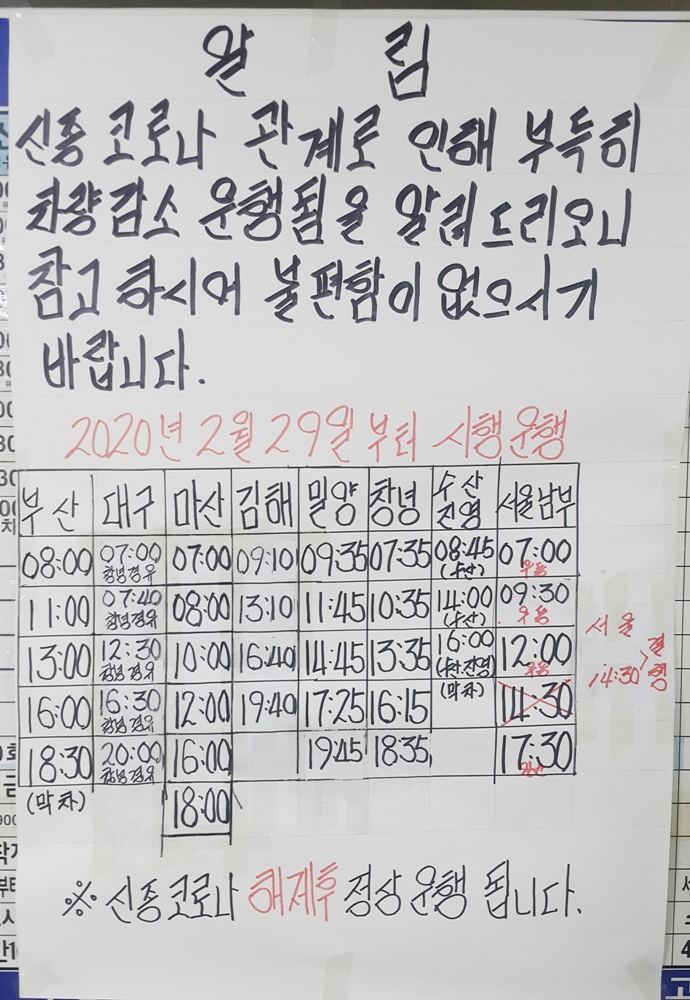 알 림
신종 코로나 관계로 인해 부득히
차량감소 운행됨을 알려드리오니
참고 하시어 불편함이 없으시기
바랍니다.
2020년 2월 29일 부터 시행운행
부산 대구 마산 김해 밀양 창녕 수산 진영 서울남부
08:00 07:00 창녕경유 07:00 09:10 09:35 07:35 08:45 (수산) 07:00 우등
11:00 07:40 창녕경유 08:00 13:10 11:45 10:35 14:00 (수산) 09:30 우등
13:00 12:30 창녕경유 10:00 16:40 14:45 13:35 16:00 (수산진영) 12:00 우등
16:00 16:30 창녕경유 12:00 19:40 17:25 16:15 (막차) 14:30
18:30 20:00 창녕경유 16:00 19:45 18:35 17:30
(막차) 18:00
서울
14:30 > 결행
※ 신종코로나 해제후 정상운행 됩니다.